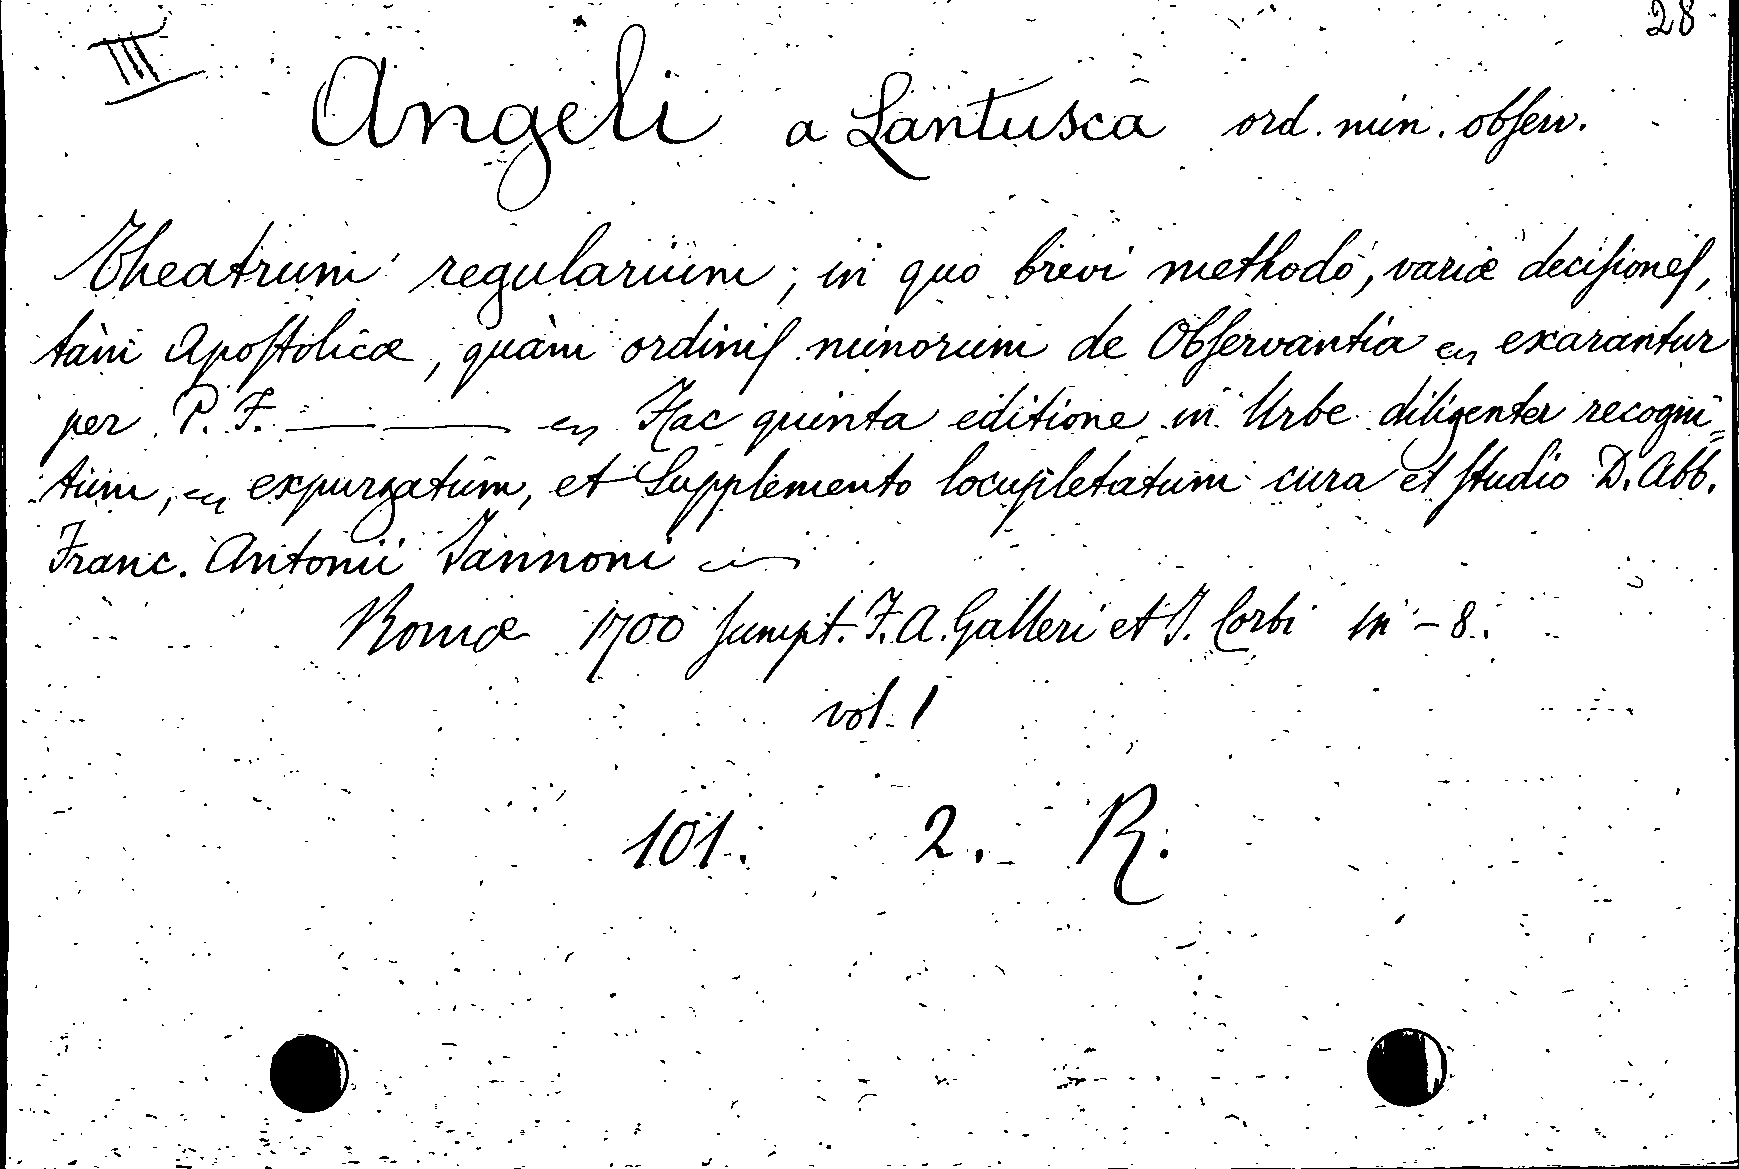 28
III
Angeli a Lantusca ord. min. obſerv.
Theatrum regularium; in quo brevi methodo, variæ deciſioneſ,
tàm Apoſtolicæ, quàm ordiniſ minorum de Obſervantia en exarantur
per P. F. — — en Hac quinta editione in Urbe diligenter recogni=
tum, en expurgatum, et Supplemento locupletatum cura et ſtudio D. Abb.
Franc. Antonii Jannoni
Romæ 1700 ſumpt. F. A. Galleri et J. Corbi in - 8.
vol. 1
101. 2. R.